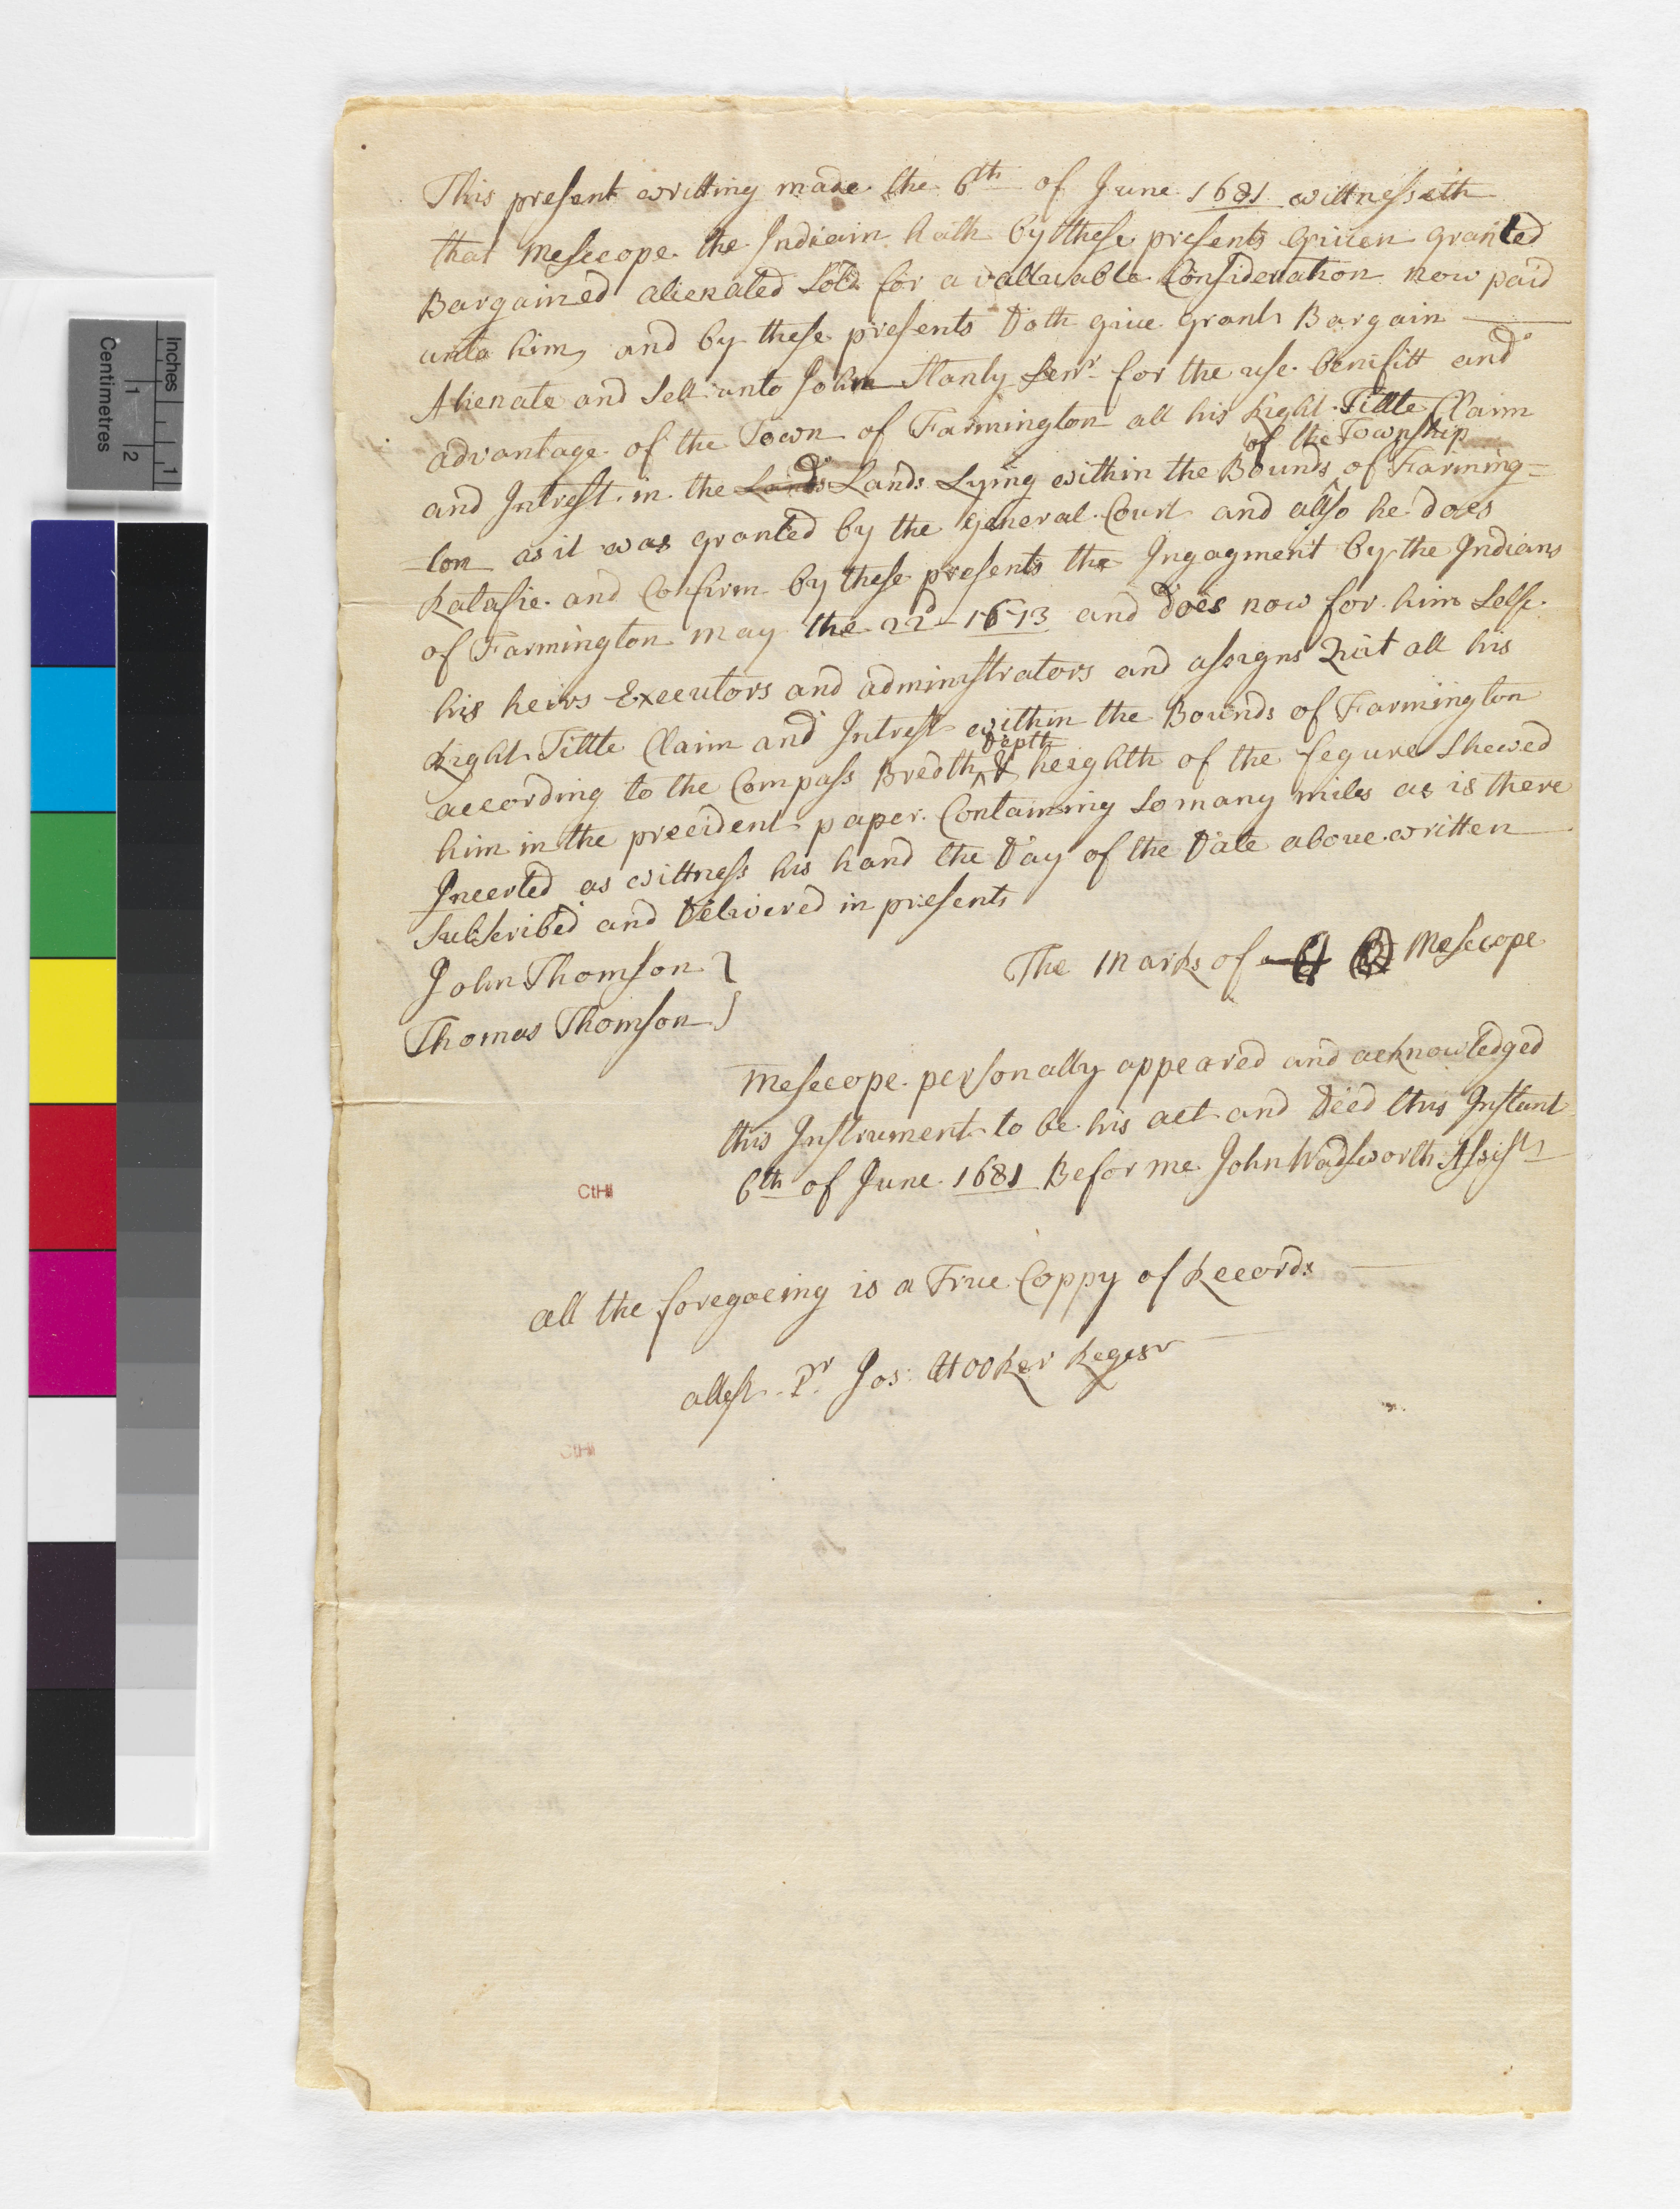 This present writting made the 6th of June 1681 wittnesseth
that Mesecope the Indiain hath by these presents Griuen granted
Bargained alienated Sold for a vallusable Consideration now paid
unto him, and by these presents Doth giue grant Bargain
Alienate and Sell unto John Stanly Senr for the use benifitt and
advantage of the Town of Farmington all his Right Tittle Claim
of the Township
and Intrest in the Lands Lands Lying within the Bounds of Farming=
ton as it was granted by the General Court and allso he does
Ratafie and Confirm by these presents the Ingagment by the Indians
of Farmington may the 22d 1673 and does now for him Selfe
his heirs Executors and administrators and assigns Quit all his
Right Tittle Claim and Intrest within the Bounds of Farmington
Depth
according to the Compass Bredth ^ & heighth of the fegure Shewed
him in the precident paper Containing So many miles as is there
Incerted as wittness his hand the Day of the Date aboue written
Subscribed and Delivered in presents
John Thomson
The Marks of Mesecope
Thomas Thomson
Mesecope personally appeared and acknowledged
this Instrument to be his act and Deed this Instant
6th of June 1681 Befor me John Wadsworth Assist
CtHi
all the foregoeing is a True Coppy of Records
attest Pr Jos: Hooker Regesr
CtHi
Inches
1
1
2
Centimetres